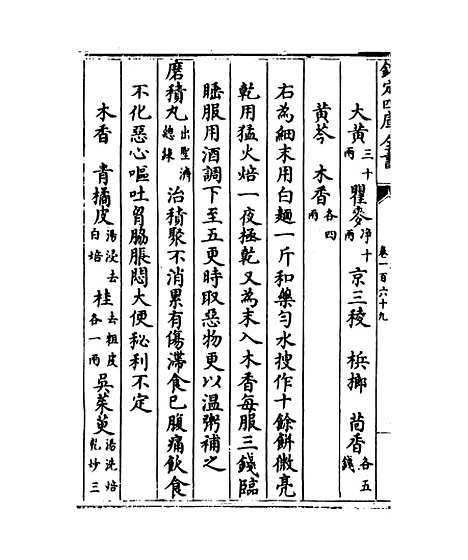 欽定四庫全書
卷一百六十九
大黄三十兩 瞿麥净十兩 京三稜 檳榔 茴香各五錢
黄芩 木香各四兩
右為細末用白麵一斤和藥匀水搜作十餘餅微亮
乾用猛火焙一夜極乾又為末入木香每服三錢臨
睡服用酒調下至五更時取惡物更以温粥補之
磨積丸出聖濟總錄 治積聚不消累有傷滯食已腹痛飲食
不化惡心嘔吐胷脇脹悶大便秘利不定
木香 青橘皮湯浸去白焙 桂去粗皮各一兩 吳茱萸湯洗焙乾炒三